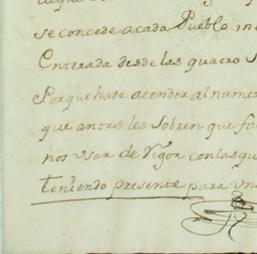 se concede acada Pueblo in
Enterada desde las quatro
Porque hase atender al nume
que antes les Sobren que fa
nos usar de Vigor con las qu
teniendo presente para un